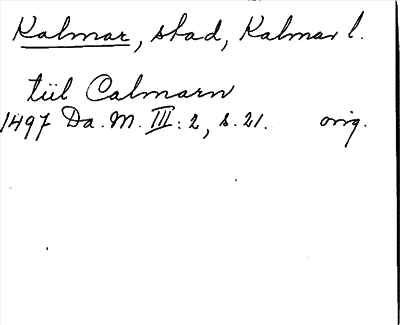 Kalmar, stad, Kalmar l.
tiil Calmarn
1497 Da. M. III: 2, s. 21. orig.